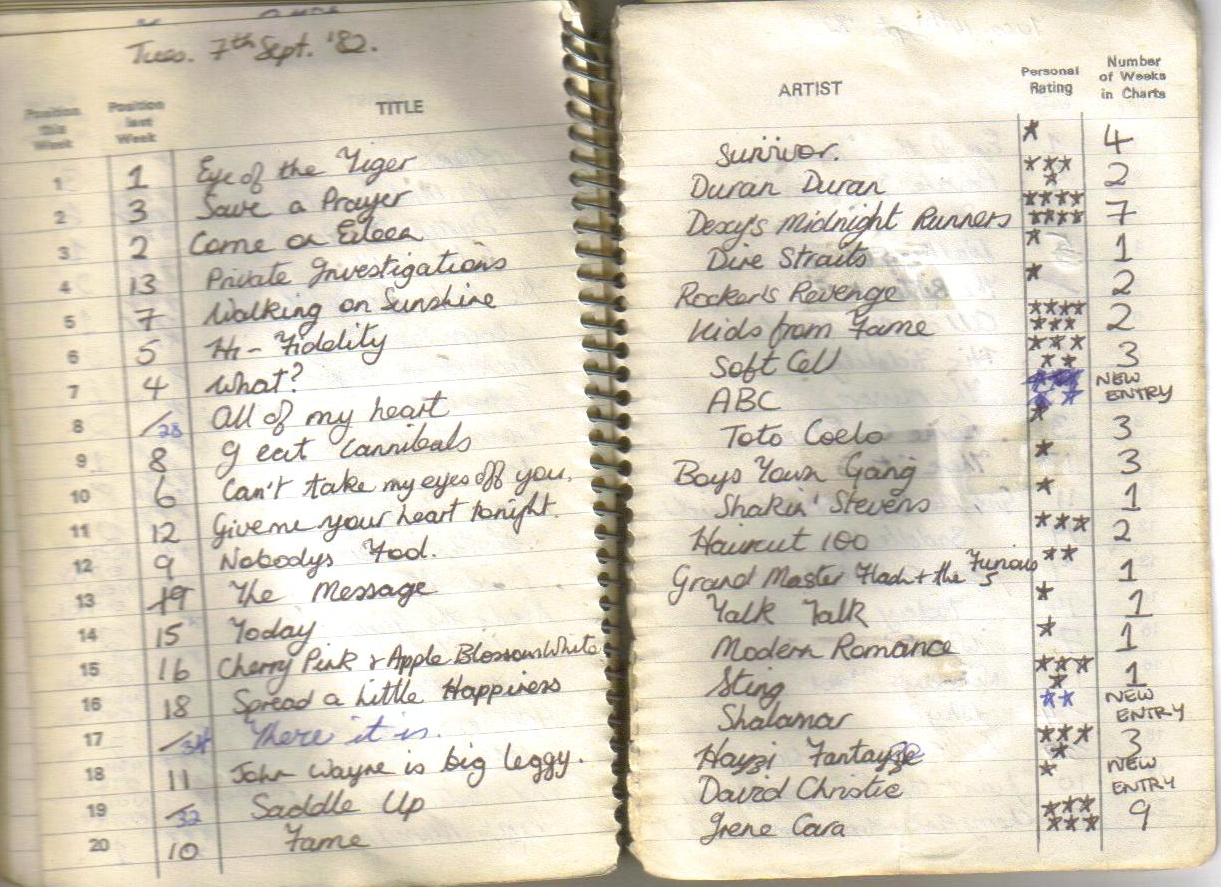 Tues. 7th Sept. '82.
Position this Week Position last Week TITLE
1 1 Eye of the Tiger
2 3 Save a Prayer
3 2 Come on Eileen
4 13 Private Investigations
5 7 Walking on Sunshine
6 5 Hi-Fidelity
7 4 What?
8 /28 All of my heart
9 8 I eat Cannibals
10 6 Can't take my eyes off you.
11 12 Give me your heart tonight.
12 9 Nobodys Fool.
13 19 The Message
14 15 Today
15 16 Cherry Pink + Apple Blossom White
16 18 Spread a little Happiness
17 /34 There it is.
18 11 John Wayne is big leggy.
19 /32 Saddle Up
20 10 Fame
ARTIST Personal Rating Number of Weeks in Charts
Survivor. * 4
Duran Duran **** 2
Dexy's Midnight Runners ******** 7
Dire Straits * 1
Rocker's Revenge * 2
Kids from Fame ******* 2
Soft Cell ***** 3
ABC ***** NEW ENTRY
Toto Coelo * 3
Boys Town Gang * 3
Shakin' Stevens * 1
Haircut 100 *** 2
Grand Master Flash + the Furious 5 ** 1
Talk Talk * 1
Modern Romance * 1
Sting **** 1
Shalamar ** NEW ENTRY
Hayzi Fantayzee **** 3
David Christie * NEW ENTRY
Irene Cara ****** 9